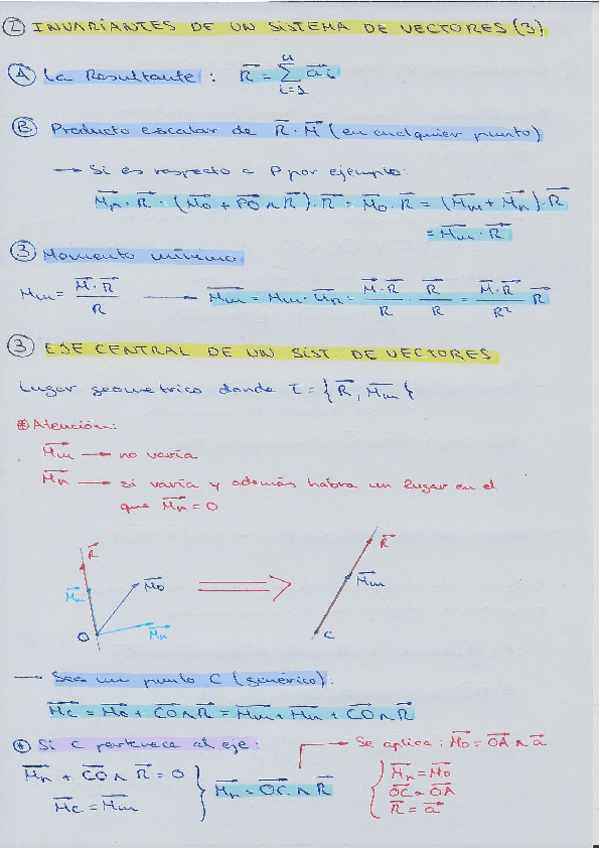 ② INVARIANTES DE UN SISTEMA DE VECTORES (3)
Ⓐ La Resultante : R⃗ = Σ(i=1→n) a⃗i
Ⓑ Producto escalar de R⃗ · M⃗ (en cualquier punto)
→ Si es respecto a P por ejemplo:
M⃗p · R⃗ = (M⃗o + PO⃗ ∧ R⃗) · R⃗ = M⃗o · R⃗ = (M⃗m + M⃗n) · R⃗
= M⃗m · R⃗
③ Momento mínimo
Mm = (M⃗ · R⃗)/R → M⃗m = Mm · u⃗R = (M⃗ · R⃗)/R · R⃗/R = (M⃗ · R⃗)/R² R⃗
③ EJE CENTRAL DE UN SIST. DE VECTORES
Lugar geometrico donde τ = {R⃗, M⃗m}
⊛ Atención:
M⃗m → no varía
M⃗n → si varía y además habra un lugar en el
que M⃗n = 0
R⃗
M⃗m
M⃗o
M⃗n
O
R⃗
M⃗m
C
→ Sea un punto C (genérico):
M⃗c = M⃗o + CO⃗ ∧ R⃗ = M⃗m + M⃗n + CO⃗ ∧ R⃗
⊛ Si C pertenece al eje:
M⃗n + CO⃗ ∧ R⃗ = 0
M⃗c = M⃗m
} M⃗n = OC⃗ ∧ R⃗
→ Se aplica: M⃗o = OA⃗ ∧ a⃗
{ M⃗n = M⃗o
OC⃗ = OA⃗
R⃗ = a⃗